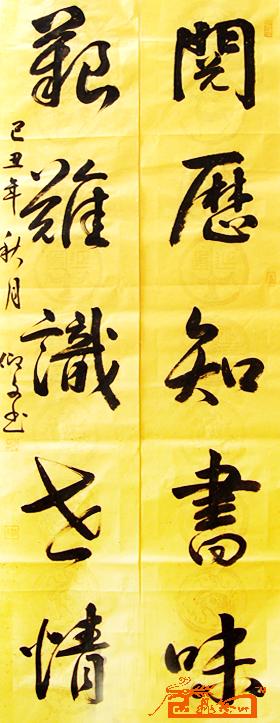 閱歷知書味
艱難識世情
己丑年秋月